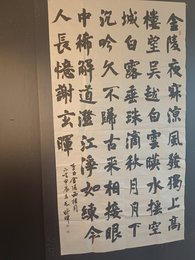 金陵夜寂涼風發獨上高
樓望吳越白雲暎水摇空
城白露垂珠滴秋月月下
沉吟久不歸古来相接眼
中稀解道澄江淨如練令
人長憶謝玄暉